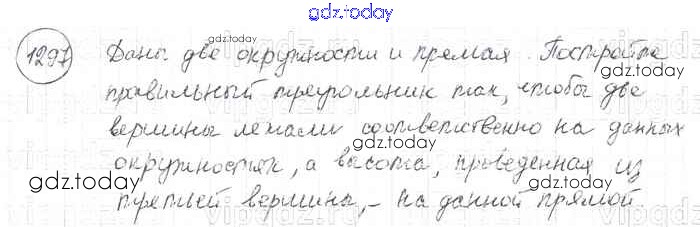 gdz.today
1297 Даны две окружности и прямая. Постройте
gdz.today gdz.today
правильный треугольник так, чтобы две
вершины лежали соответственно на данных
gdz.today
окружностях, а высота, проведенная из
gdz.today gdz.today
третьей вершины, - на данной прямой